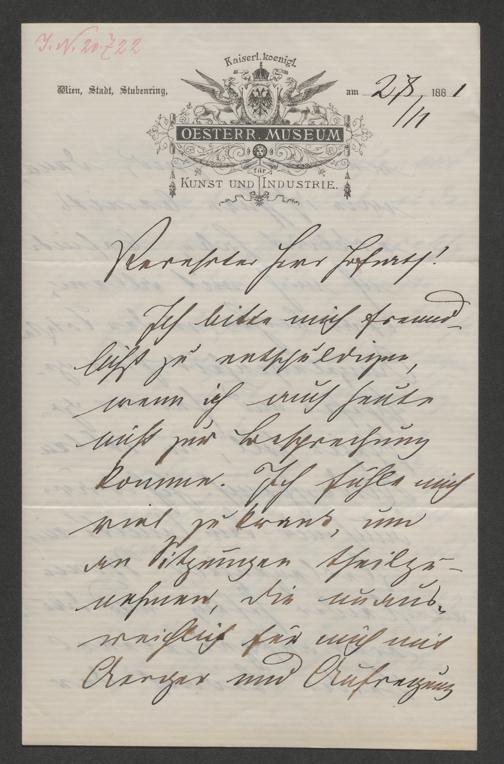 I.N. 20.722
Kaiserl. koenigl.
Wien, Stadt, Stubenring, am 28/11 1881
OESTERR. MUSEUM
für
KUNST UND INDUSTRIE.
Verehrter Herr Hofrath!
Ich bitte mich freund-
lichst zu entschuldigen,
wenn ich auch heute
nicht zur Besprechung
komme. Ich fühle mich
viel zu krank, um
an Sitzungen theilzu-
nehmen, die unaus-
weichlich für mich mit
Aerger und Aufregung